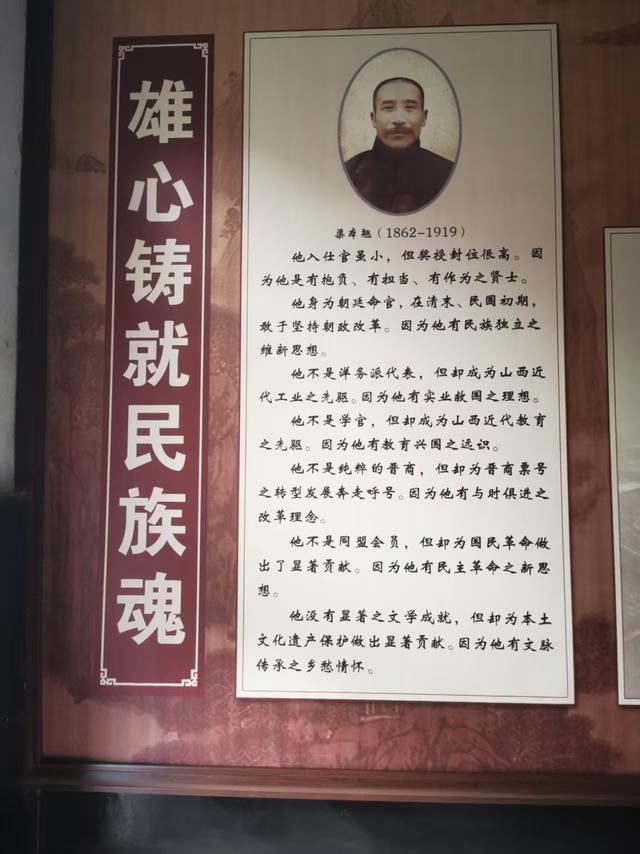 雄心铸就民族魂
渠本翘（1862-1919）
他入仕官虽小，但奖授封位很高。因
为他是有抱负、有担当、有作为之贤士。
他身为朝廷命官，在清末、民国初期，
敢于坚持朝政改革。因为他有民族独立之
维新思想。
他不是洋务派代表，但却成为山西近
代工业之先驱。因为他有实业救国之理想。
他不是学官，但却成为山西近代教育
之先驱。因为他有教育兴国之远识。
他不是纯粹的晋商，但却为晋商票号
之转型发展奔走呼号。因为他有与时俱进之
改革理念。
他不是同盟会员，但却为国民革命做
出了显著贡献。因为他有民主革命之新思
想。
他没有显著之文学成就，但却为本土
文化遗产保护做出显著贡献。因为他有文脉
传承之乡愁情怀。